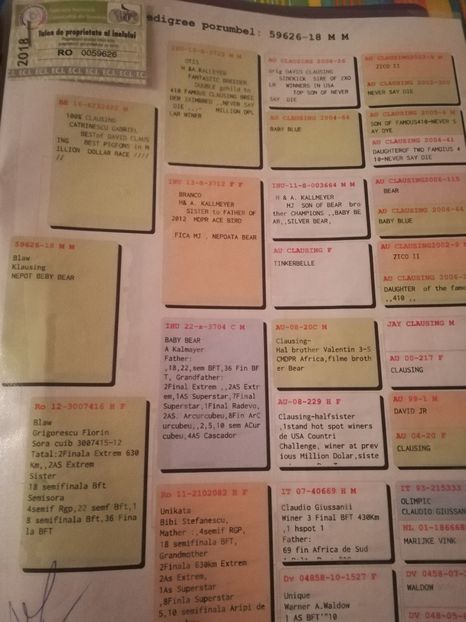 2018
Talon de proprietate al inelului
RO 0059626
edigree porumbel: 59626-18 M M
100% CLAUSING
CATRINESCU GABRIEL
BESTof DAVID CLAUS
ING BEST PIGEONS in M
ILLION DOLLAR RACE ////
//
59626-18 M M
Blaw
Klausing
NEPOT BEBY BEAR
Ro 12-3007416 H F
Blaw
Grigorescu Florin
Sora cuib 3007415-12
Tatal:2Finala Extrem 630
Km,,2AS Extrem
Sister
18 semifinala Bft
Semisora
4semif Rgp,22 semf Bft,1
8 semifinala Bft,36 Fina
la BFT
OTIS
H &A.KALLMEYER
FANTASTIC BREEDER
DOUBLE gchild to
410 FAMOUS CLAUSING BREE
DER EXINBRED ,,NEVER SAY
DIE ,,, MILLION DPL
LAR WINER
IHU 13-8-3712 F F
BRANCO
H& A. KALLMEYER
SISTER to FATHER OF
2012 MDPR ACE BIRD
FICA MJ , NEPOATA BEAR
IHU 22-x-3704 C M
BABY BEAR
A Kalmayer
Father:
,18,22,sem BFT,36 Fin BF
T, Grandfather:
2Final Extrem ,,2AS Extr
em,1AS Superstar,7Final
Superstar,1Final Radevo,
2AS. Arcurcubeu,8Fin ArC
urcubeu,,2,5,10 sem ACur
cubeu,4AS Cascador
Ro 11-2102082 H F
Unikata
Bibi Stefanescu,
Mather :,4semif RGP,
18 semifinala BFT,
Grandmother
2Finala 630km Extrem
2As Extrem,
1As Superstar
,8Finla Superstar
5,10 semifinala Aripi de
orig DAVID CLAUSING
SIDEKICK SIRE OF 2XO
LR WINNERS IN USA
TOP SON OF NEVER
SAY DIE
AU CLAUSING 2004-64
BABY BLUE
IHU-11-8-003664 M M
H & A. KALLMEYER
MJ SON OF BEAR bro
ther CHAMPIONS ,,BABY BE
AR,,SILVER BEAR,
AU CLAUSING F
TINKERBELLE
AU-08-20C M
Clausing-
Hal brother Valentin 3-5
CMDPR Africa,filme broth
er Bear
AU-08-229 H F
Clausing-halfsister
,1stand hot spot winers
de USA Countri
Challenge, winer at prev
ious Million Dolar,siste
IT 07-40669 H M
Claudio Giussanii
Winer 3 Final BFT 430Km
,1 hspot 1
Father:
69 fin Africa de Sud
DV 04858-10-1527 F
Unique
Warner A.Waldow
1 AS BFT'"10
ZICO II
NEVER SAY DIE
SON OF FAMOUS410-NEVER S
AY DYE
AU CLAUSING2004-41
DAUGHTEROF TWO FAMOIUS 4
10-NEVER SAY DIE
AU CLAUSING2006-115
BEAR
AU CLAUSING 2004-64
BABY BLUE
ZICO II
DAUGHTER of the famo
,,410 ,,
JAY CLAUSING M
AU 00-217 F
CLAUSING
AU 99-1 M
DAVID JR
AU 04-20 F
CLAUSING
IT 93-215333
OLIMPIC
CLAUDIO GIUSSAN
NL 01-186668
MARIJKE VINK
WALDOW
WALDOW